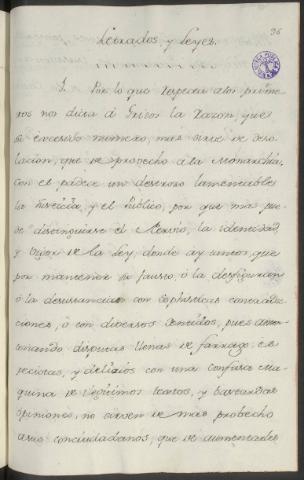 96
Letrados y Leyes.
§. Por lo que respecta a los prime-
ros nos dicta á Gritos la razon, que
su excesibo numero, mas sirve de deso-
lacion, que de probecho a la Monarchia,
Con el padece un desdoro lamentable
la Justicia, y el Publico, por que mal pue-
de distinguirse el Nervio, la identidad,
y Vigor de la Ley, donde ay tantos, que
por mantener su fausto, ó la desfiguran
ó la desustancian con sophisticas comenta-
ciones, ó con diversos sentidos, pues amon-
tonando disputas llenas de farrago, es-
peciotas, y delirios con una confusa Ma-
quina de Vegetimos textos, y bastardas
opiniones, no sirven de mas probecho
a sus conciudadanos, que de aumentarles